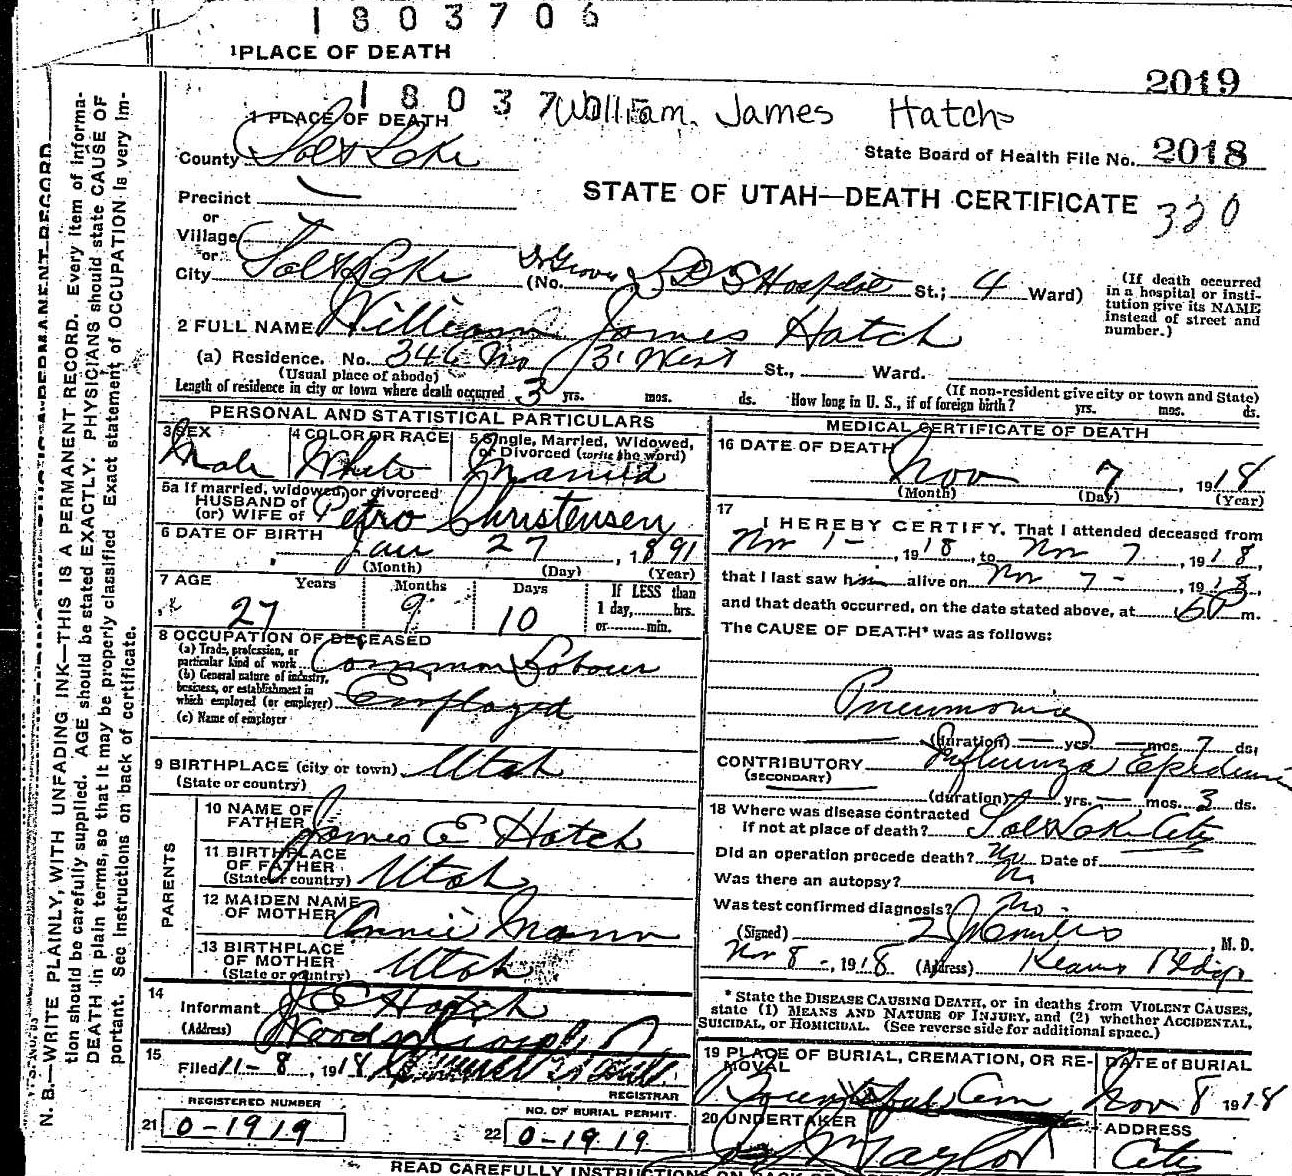 1803706
1 PLACE OF DEATH
2019
18037
William James Hatch
1 PLACE OF DEATH
County Salt Lake
State Board of Health File No. 2018
Precinct
STATE OF UTAH—DEATH CERTIFICATE 320
or
Village
or
City Salt Lake (No. Dr Groves L D S Hospital St.; 4 Ward)
(If death occurred in a hospital or institution give its NAME instead of street and number.)
2 FULL NAME William James Hatch
(a) Residence. No. 346 No 3 West St., Ward.
(Usual place of abode) (If non-resident give city or town and State)
Length of residence in city or town where death occurred 3 yrs. mos. ds. How long in U. S., if of foreign birth? yrs. mos. ds.
PERSONAL AND STATISTICAL PARTICULARS
3 SEX Male
4 COLOR OR RACE White
5 Single, Married, Widowed, or Divorced (write the word) Married
5a If married, widowed, or divorced
HUSBAND of
(or) WIFE of Petro Christensen
6 DATE OF BIRTH Jan 27, 1891
(Month) (Day) (Year)
7 AGE Years Months Days If LESS than
27 9 10 1 day, hrs.
or min.
8 OCCUPATION OF DECEASED
(a) Trade, profession, or particular kind of work Common Labour
(b) General nature of industry, business, or establishment in which employed (or employer) Employed
(c) Name of employer
9 BIRTHPLACE (city or town) Utah
(State or country)
PARENTS
10 NAME OF FATHER James E Hatch
11 BIRTHPLACE OF FATHER
(State or country) Utah
12 MAIDEN NAME OF MOTHER Annie Mann
13 BIRTHPLACE OF MOTHER
(State or country) Utah
14
Informant J E Hatch
(Address) Woods Cross
15
Filed 11-8, 1918
REGISTRAR
REGISTERED NUMBER
21 0-1919
NO. OF BURIAL PERMIT.
22 0-1919
MEDICAL CERTIFICATE OF DEATH
16 DATE OF DEATH
Nov 7, 1918
(Month) (Day) (Year)
17
I HEREBY CERTIFY, That I attended deceased from
Nov 1-, 1918, to Nov 7, 1918,
that I last saw him alive on Nov 7-, 1918,
and that death occurred, on the date stated above, at 6 P m.
The CAUSE OF DEATH* was as follows:
Pneumonia
(duration) — yrs. — mos. 7 ds.
CONTRIBUTORY Influenza Epidemic
(SECONDARY)
(duration) — yrs. — mos. 3 ds.
18 Where was disease contracted
if not at place of death? Salt Lake City
Did an operation precede death? No Date of
Was there an autopsy? No
Was test confirmed diagnosis? No.
(Signed) , M. D.
Nov 8-, 1918 (Address) Kearns Bldg
* State the DISEASE CAUSING DEATH, or in deaths from VIOLENT CAUSES, state (1) MEANS AND NATURE OF INJURY, and (2) whether ACCIDENTAL, SUICIDAL, or HOMICIDAL. (See reverse side for additional space.)
19 PLACE OF BURIAL, CREMATION, OR REMOVAL
Bountiful Cem
DATE of BURIAL
Nov 8 1918
20 UNDERTAKER
Taylor
ADDRESS
City
READ CAREFULLY INSTRUCTIONS ON BACK OF
N. B.—WRITE PLAINLY, WITH UNFADING INK—THIS IS A PERMANENT RECORD. Every item of information should be carefully supplied. AGE should be stated EXACTLY. PHYSICIANS should state CAUSE OF DEATH in plain terms, so that it may be properly classified. Exact statement of OCCUPATION is very important. See instructions on back of certificate.